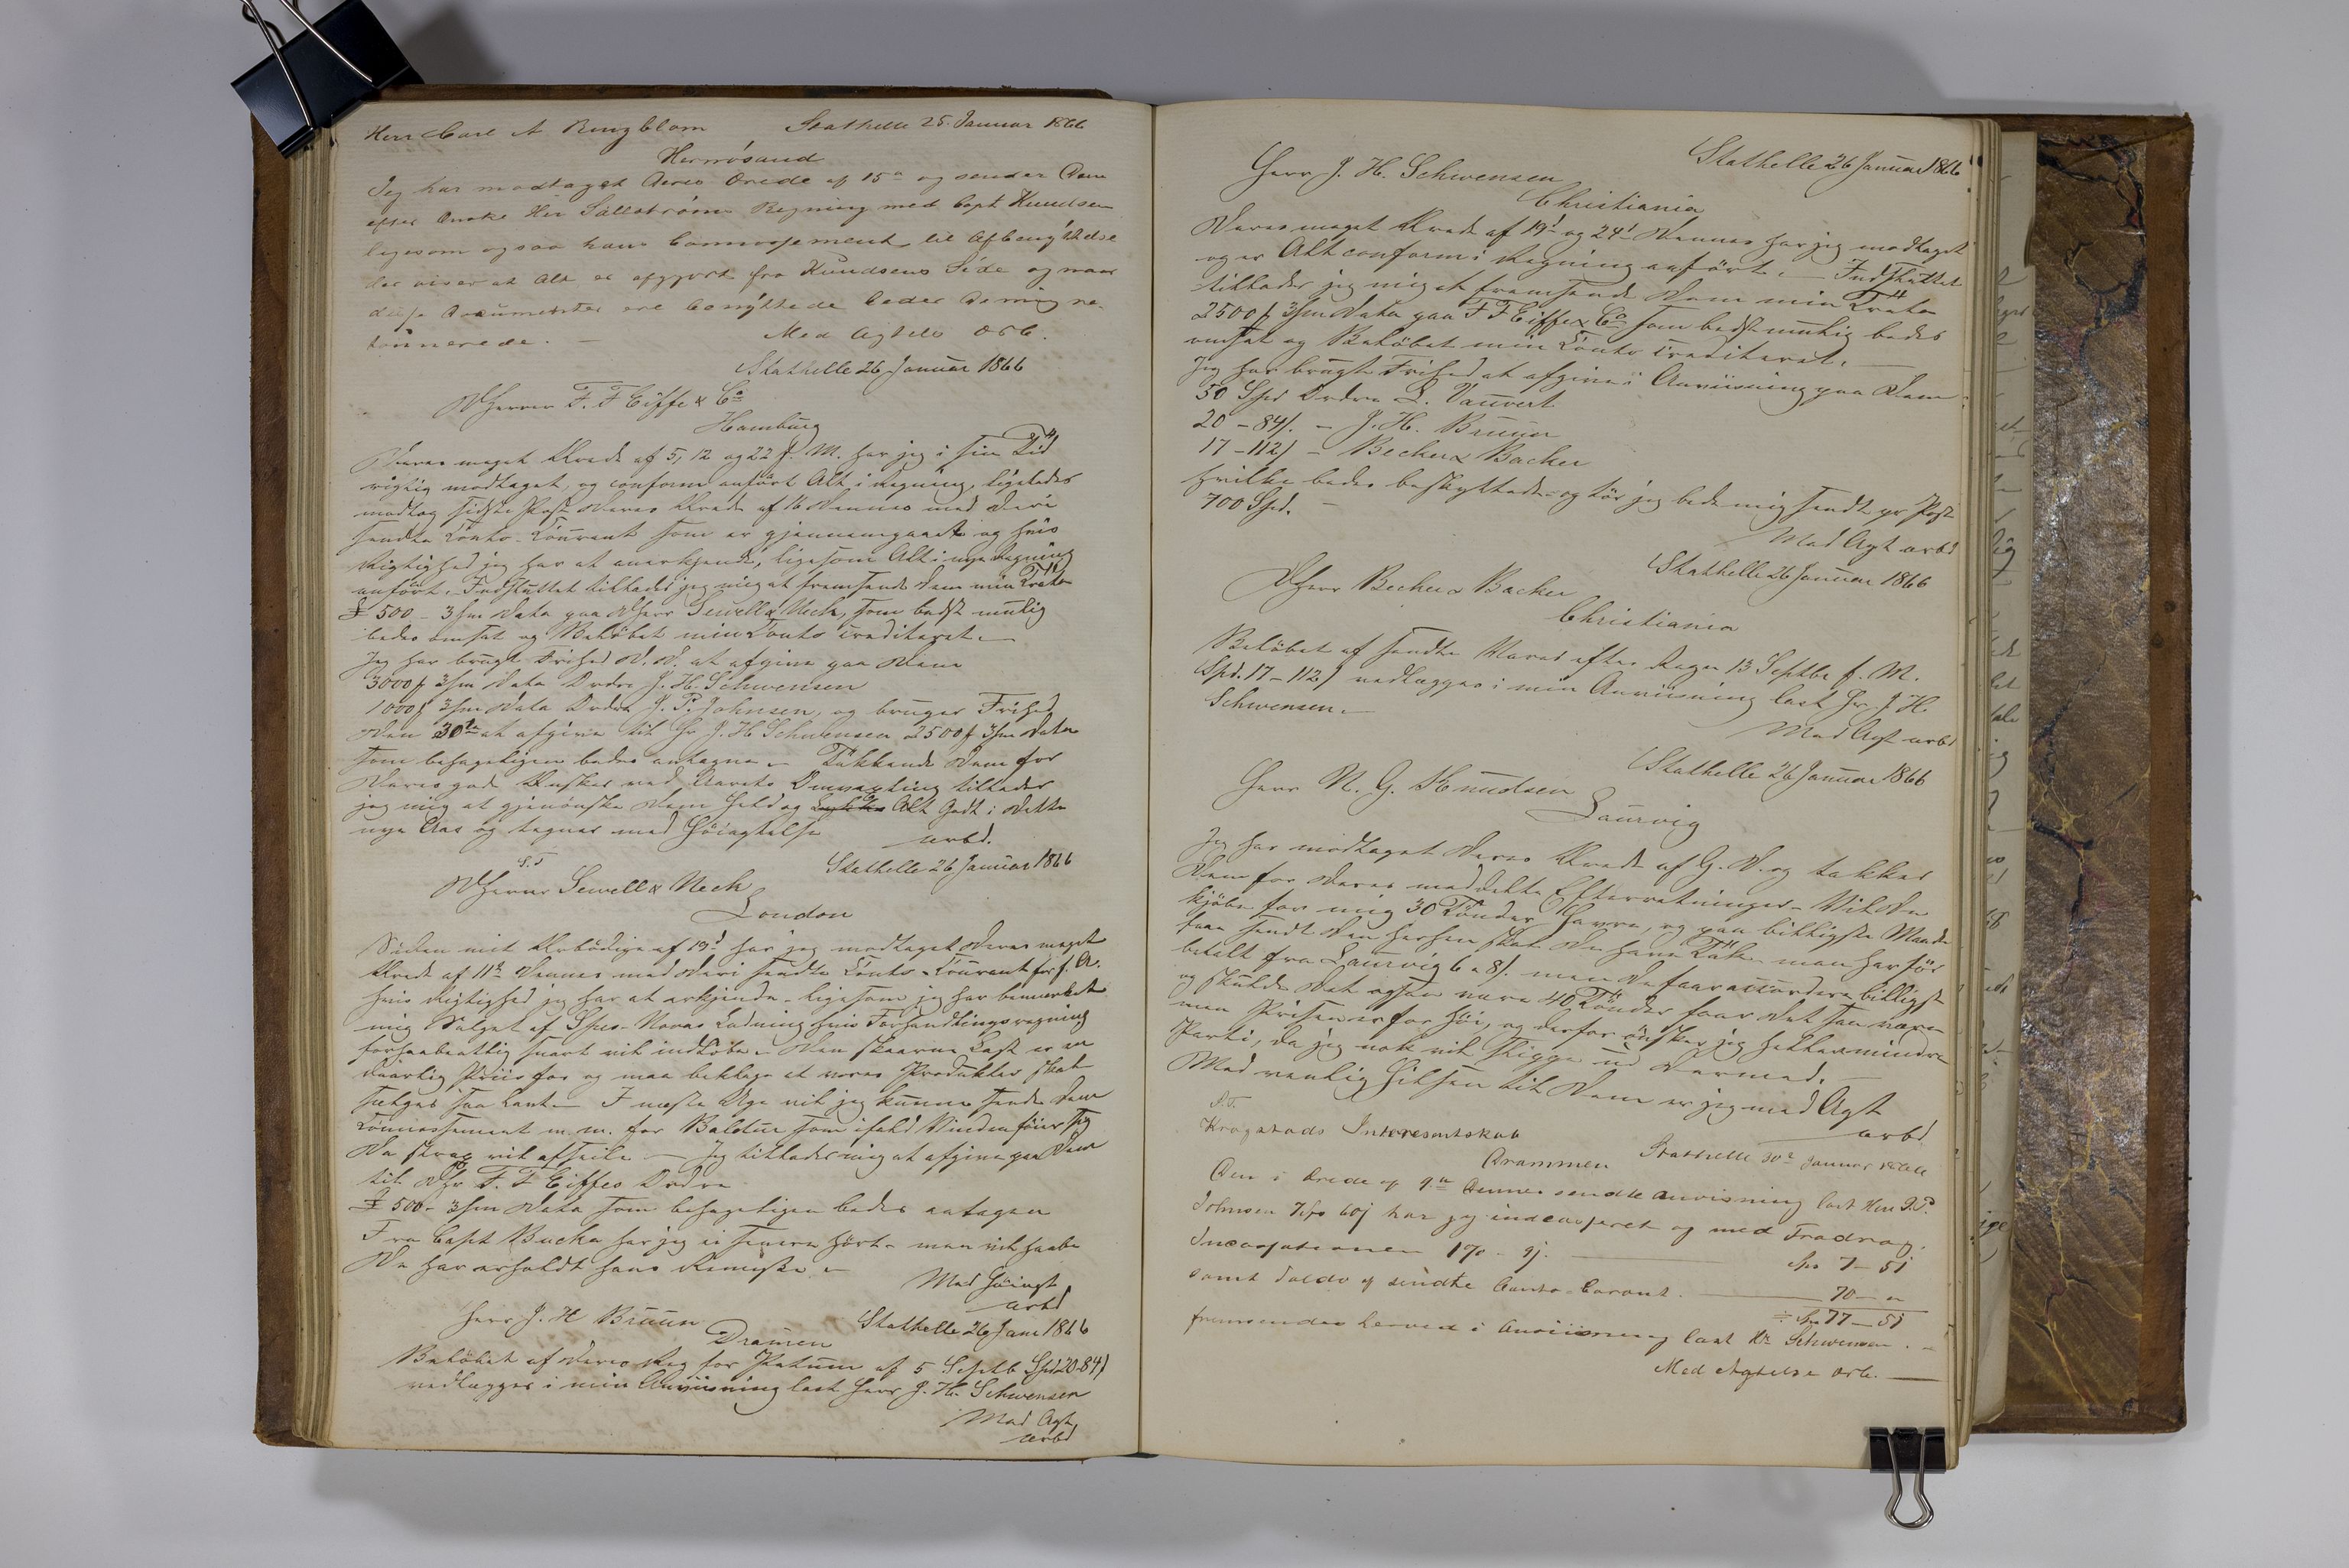 Herr Carl A Ringblom Stathelle 25. Januar 1866
Hernösand
Jeg har modtaget Deres Ærede af 15de og sender Dem
efter Ønske Her Sällströms Regning med Capt Knudsen
ligesom ogsaa hans Connossement til Afbenyttelse
der viser at Alt er afgjort fra Knudsens Side og naar
disse Documenter ere benyttede beder De mig re-
tournerede. —
Med Agtelse Ærb.
Stathelle 26 Januar 1866
DHerrer F. F Eiffe & Co
Hamburg
Deres meget Ærede af 5, 12 og 22 f. M. har jeg i sin Tid
rigtig modtaget, og conform anført Alt i Regning, ligeledes
modtog sidste Post Deres Ærede af 16 Dennes med deri
sendte Conto-Courant som er gjennemgaaet og hvis
Rigtighed jeg har at anerkjende, ligesom Alt i nye Regning
anført. Indsluttet tillader jeg mig at fremsende Dem min Tratte
£ 500 – 3/m Dato paa DHerr Sewell & Neck, som bedst mulig
bedes omsat og Beløbet min Conto crediteret. —
Jeg har brugt Frihed D. D. at afgive paa Dem
3000 f 3/m Dato Ordre J. H. Schwensen
1000 f 3/m Dato Ordre J. P. Johnsen, og bruger Frihed
den 30te at afgive til Hr J. H Schwensen 2500 f 3/m Dato
som behageligen bedes antagne. — Takkende Dem for
Deres gode Ønsker ved Aarets Omvexling tillader
jeg mig at gjenønske Dem Held og Alt Godt i dette
nye Aar og tegner med Høiagtelse
ærbd.
S. T Stathelle 26 Januar 1866
DHerrer Sewell & Neck
London
Siden mit Ærbødige af 19d har jeg modtaget Deres meget
Ærede af 11te Dennes med deri sendte Conto-Courant for f. A.
hvis Rigtighed jeg har at erkjende – ligesom jeg har bemærket
mig Salget af Spes-Novas Ladning hvis Forhandlingsregning
forhaabentlig snart vil indløbe. – Den skaarne Last er en
daarlig Priis for og maa beklage at vores Produkter skal
sælges saa Lavt. — I næste Uge vil jeg kunne sende Dem
Connossement m. m. for Baldur som ifald Vinden føier sig
da strax vil afseile — Jeg tillader mig at afgive paa Dem
til DHr F. F Eiffes Ordre
£ 500 – 3/m Dato som behageligen bedes antagen
Fra Capt Bucka har jeg ei senere hørt – men vil haabe
De har erholdt hans Remisse. —
Med Høiagt
ærbd
Herr J. H Bruun Stathelle 26 Jan 1866
Dramen
Beløbet af Deres Reg for af 5 Septb Spd 20-84 /
vedlægges i min Anviisning last Herr J. H. Schwensen
Med Agt,
ærbd
Stathelle 26 Januar 1866
Herr J. H. Schwensen
Christiania
Deres meget Ærede af 19d og 24d Dennes har jeg modtaget
og er Alt conform i Regning anført. — Indsluttet
tillader jeg mig at fremsende Dem min Tratte
2500 f 3/m Dato paa F F Eiffe & Co som bedst mulig bedes
omsat og Beløbet min Conto crediteret. —
Jeg har brugt Frihed at afgive i Anviisning paa Dem:
50 Spd Ordre L. Vauvert
20 – 84/. – J. H. Bruun
17 – 112/ – Becher & Backer
hvilke bedes beskyttede – og tør jeg bede mig sendt pr Post
700 Spd. —
Med Agt ærbd
Stathelle 26 Januar 1866
DHerr Becher & Backer
Christiania
Beløbet af sendte Varer efter Regn 13 Septbr f. M.
Spd. 17 – 112 / vedlægges i min Anviisning last Hr J. H.
Schwensen. —
Med Agt ærbd
Stathelle 26 Januar 1866
Herr N. G. Knudsen
Laurvig
Jeg har modtaget Deres Ærede af G. D. og takker
Dem for Deres meddelte Efterretninger – Vil De
kjøbe for mig 30 Tønder Havre, og paa billigste Maade
faae sendt den herhen skal De have Tak – man har før
betalt fra Laurvig 6 a 8/. men De faar accordere billigst
og skulde det ogsaa være 40 Tønder faar det saa være
men Prisen er for høi, og derfor ønsker jeg heller mindre
Parti, da jeg nok vil ligge ud dermed. —
Med venlig Hilsen til Dem er jeg med Agt
ærbd.
S. T.
Krogstads Interesentskab
Drammen Stathelle 30te Januar 1866
Den i Ærede af 9de Dennes sendte Anvisning last Herr J. P.
Johnsen 7 60/ har jeg indcasseret og med Fradrag
Incassationen 1% – 9/. — Spd 7 – 51
samt Saldo af sendte Conto-Corant. — 70 – "
÷ Spd 77 – 51
fremsendes herved i Anviisning last Hr Schwensen. —
Med Agtelse Ærb. —